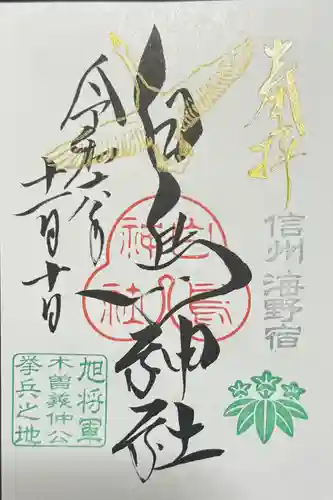 奉拝
信州 海野宿
白鳥神社
白鳥神社
令和六年
十一月十日
旭将軍
木曽義仲公
挙兵之地